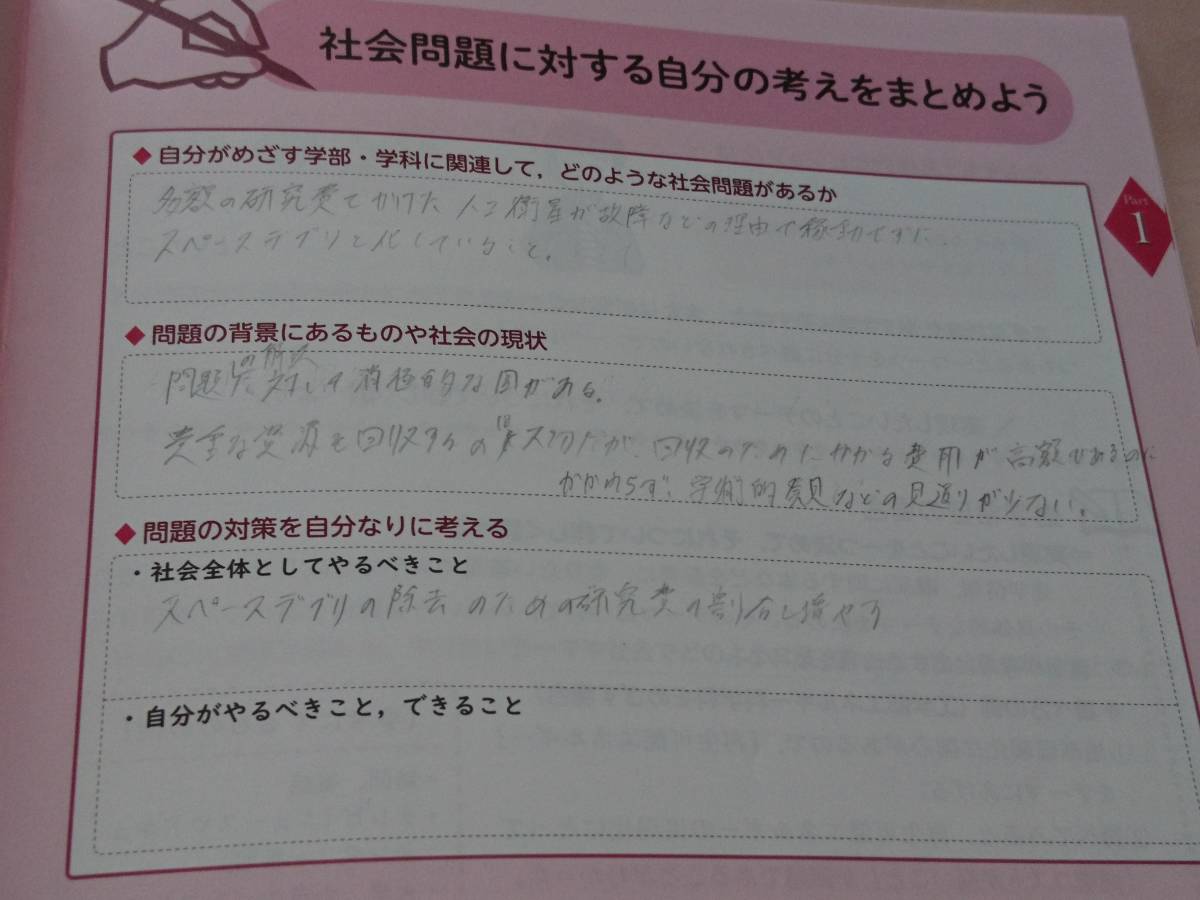 社会問題に対する自分の考えをまとめよう
Part
1
◆自分がめざす学部・学科に関連して，どのような社会問題があるか
多額の研究費をかけた人工衛星が故障などの理由で稼動せずに
スペースデブリと化していること。
◆問題の背景にあるものや社会の現状
の解決
問題に対して消極的な国がある。
貴重な資源を回収するのは大切だが、回収のためにかかる費用が高額であるのに
かかわらず、学術的発見などの見返りが少ない。
◆問題の対策を自分なりに考える
・社会全体としてやるべきこと
スペースデブリの除去のための研究費の割合を増やす
・自分がやるべきこと，できること